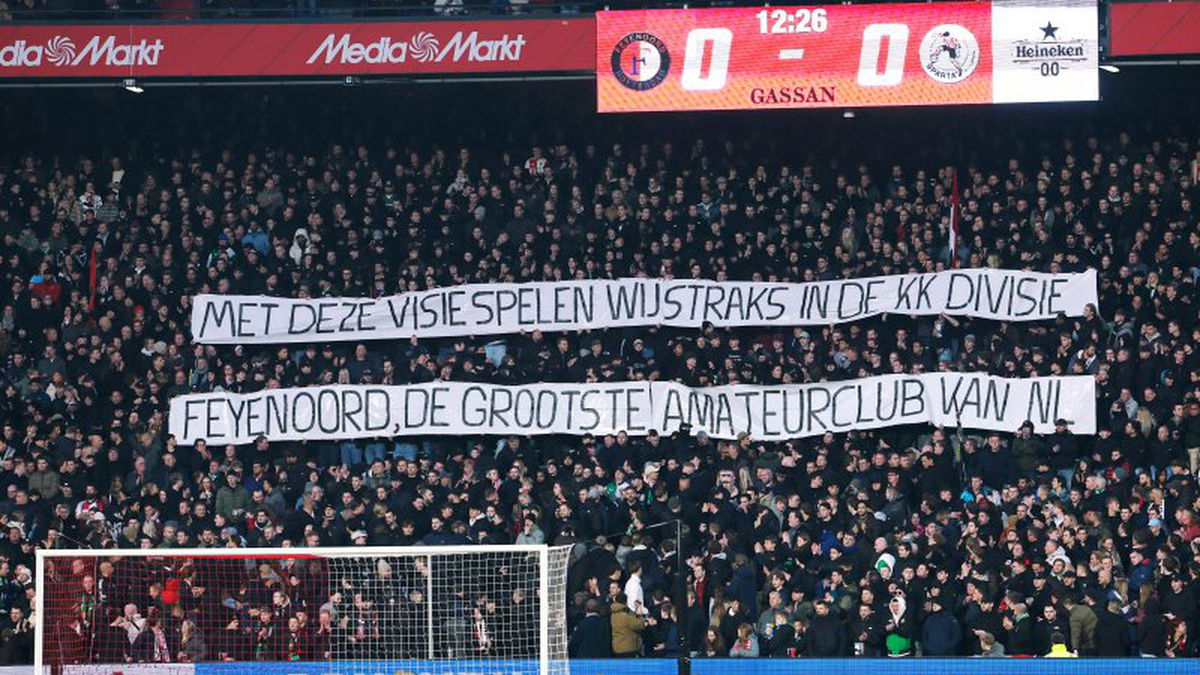 Media Markt
Media Markt
FEYENOORD
F
ROTTERDAM
0
12:26
-
0
SPARTA
GASSAN
Heineken
00
MET DEZE VISIE SPELEN WIJ STRAKS IN DE KK DIVISIE
FEYENOORD, DE GROOTSTE AMATEURCLUB VAN NL